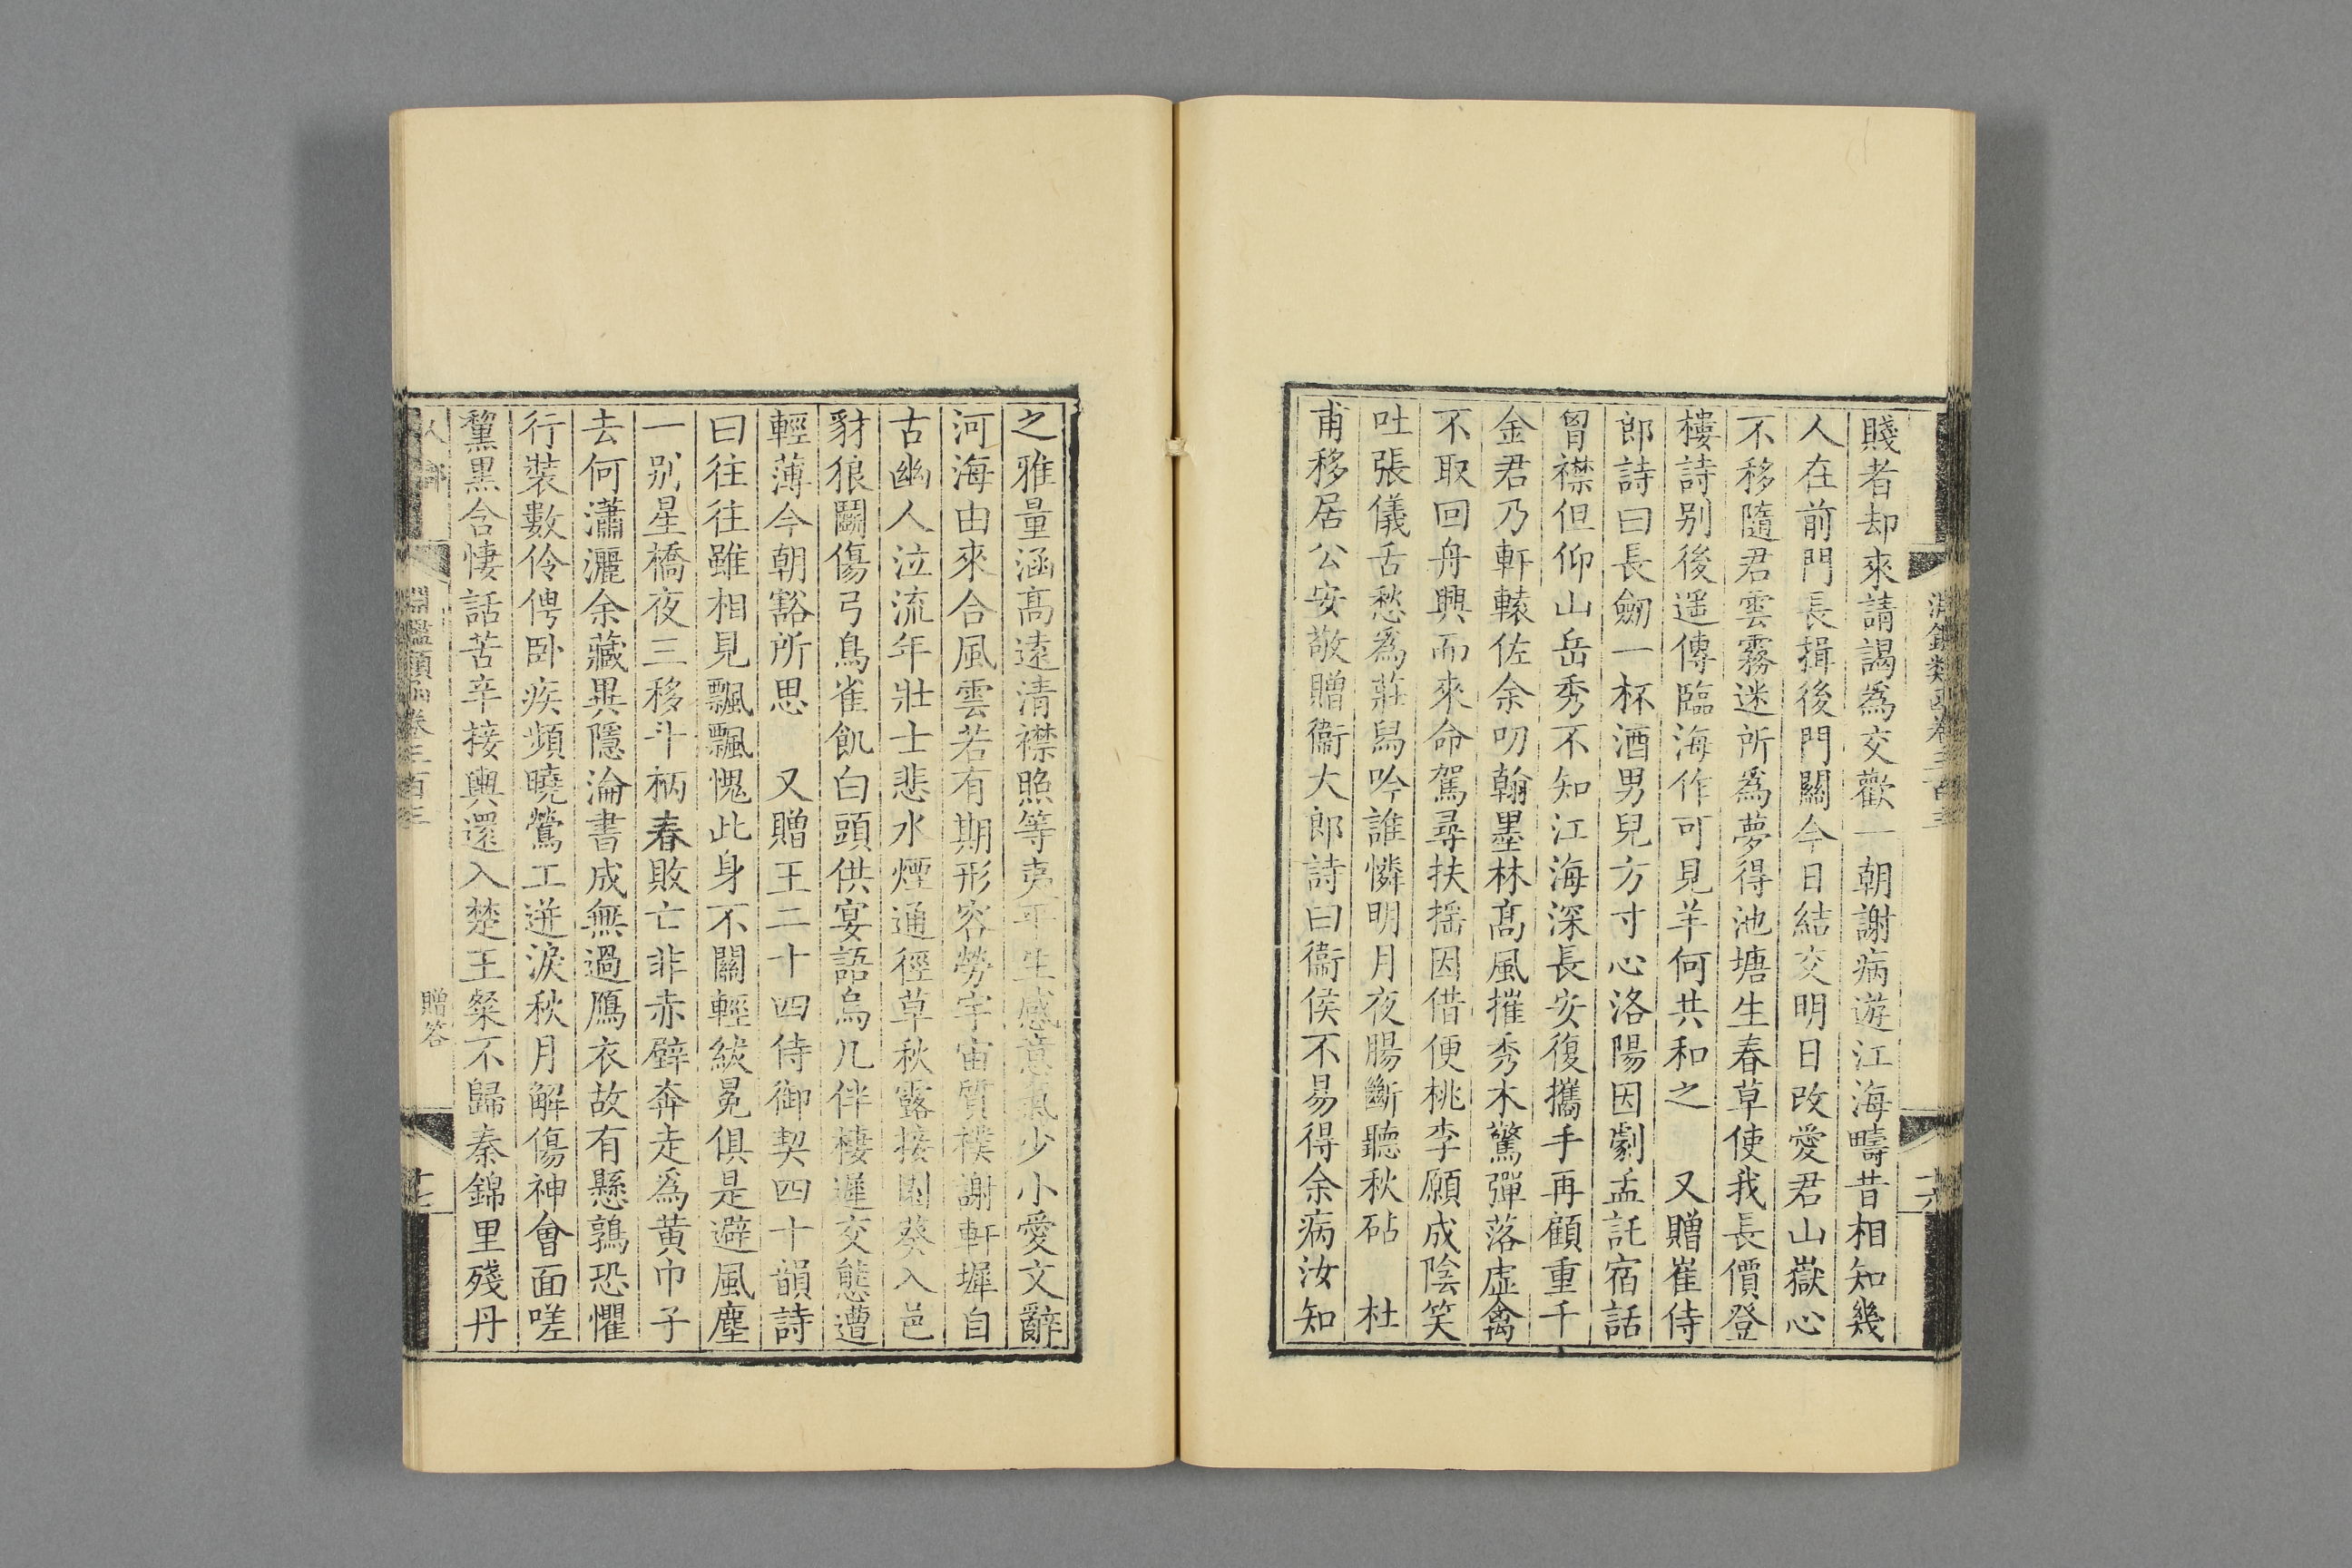 賤者却來請謁爲交歡一朝謝病遊江海疇昔相知幾
人在前門長揖後門關今日結交明日改愛君山嶽心
不移隨君雲霧迷所爲夢得池塘生春草使我長價登
樓詩别後遥傳臨海作可見羊何共和之　又贈崔侍
郎詩曰長劒一杯酒男兒方寸心洛陽因劇孟託宿話
胷襟但仰山岳秀不知江海深長安復攜手再顧重千
金君乃軒轅佐余叨翰墨林髙風摧秀木驚彈落虚禽
不取回舟興而來命駕尋扶揺因借便桃李願成陰笑
吐張儀舌愁爲莊舄吟誰憐明月夜腸斷聽秋砧　杜
甫移居公安敬贈衞大郎詩曰衞侯不易得余病汝知
之雅量涵髙遠清襟照等夷平生感意氣少小愛文辭
河海由來合風雲若有期形容勞宇宙質樸謝軒墀自
古幽人泣流年壯士悲水煙通徑草秋露接園葵入邑
豺狼鬭傷弓鳥雀飢白頭供宴語烏几伴棲遲交態遭
輕薄今朝豁所思　又贈王二十四侍御契四十韻詩
曰往往雖相見飄飄愧此身不關輕紱冕俱是避風塵
一别星橋夜三移斗柄春敗亡非赤壁奔走爲黄巾子
去何瀟灑余藏異隱淪書成無過鴈衣故有懸鶉恐懼
行裝數伶俜卧疾頻曉鶯工迸淚秋月解傷神會面嗟
黧黒含悽話苦辛接輿還入楚王粲不歸秦錦里殘丹
人部
淵鑑類函卷三百三
贈答
十七